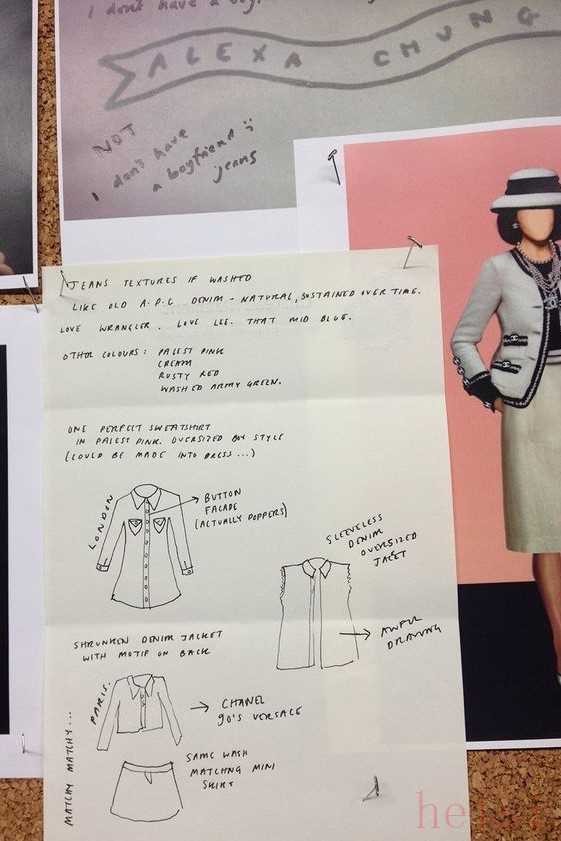 I don't have a
ALEXA CHUNG
NOT
I don't have
a boyfriend
jeans
JEANS TEXTURES IF WASHED
LIKE OLD A.P.C DENIM - NATURAL, SUSTAINED OVER TIME.
LOVE WRANGLER. LOVE LEE. THAT MID BLUE.
OTHER COLOURS: PALEST PINK
CREAM
RUSTY RED
WASHED ARMY GREEN.
ONE PERFECT SWEATSHIRT
IN PALEST PINK. OVERSIZED BOY STYLE
(COULD BE MADE INTO DRESS...)
LONDON
BUTTON
FACADE
(ACTUALLY POPPERS)
SLEEVELESS
DENIM
OVERSIZED
JACET
AWFUL
DRAWING
SHRUNKEN DENIM JACKET
WITH MOTIF ON BACK
PARIS.
CHANEL
90'S VERSACE
MATCHY MATCHY...
SAME WASH
MATCHNG MINI
SKIRT